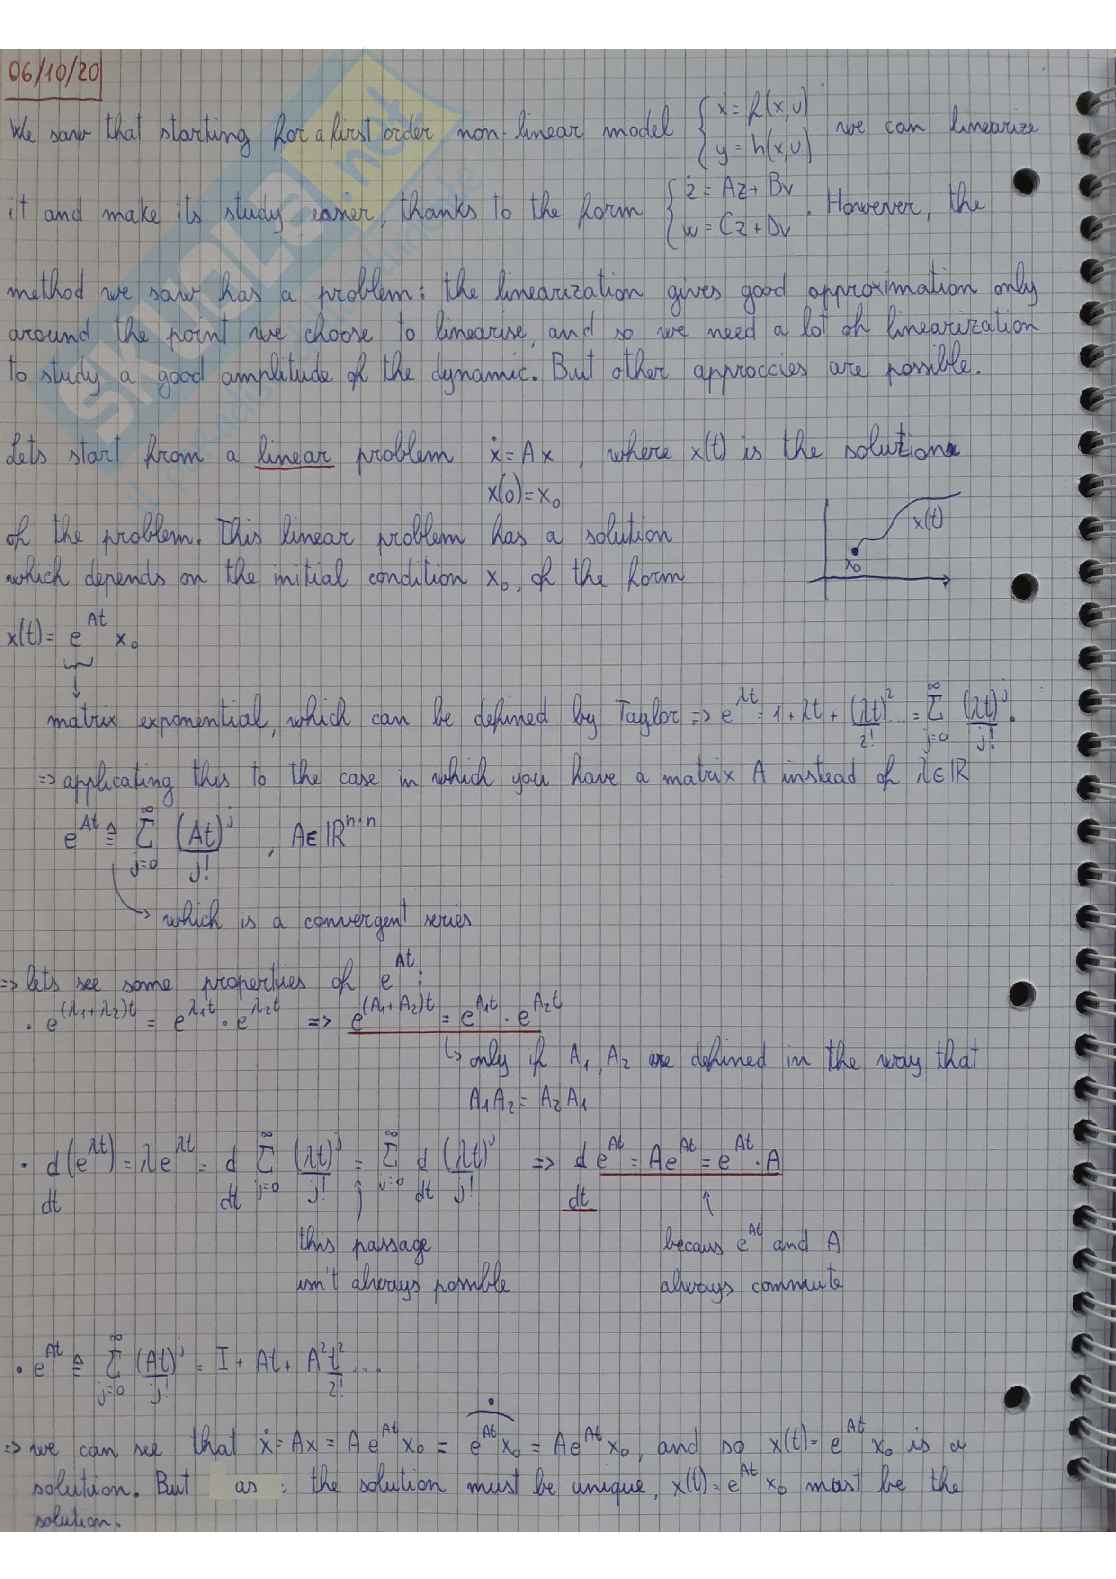 06/10/20
We saw that starting for a first order non-linear model { ẋ = f(x,u) we can linearize
y = h(x,u)
it and make its study easier, thanks to the form { ż = Az + Bv . However, the
w = Cz + Dv
method we saw has a problem: the linearization gives good approximation only
around the point we choose to linearise, and so we need a lot of linearization
to study a good amplitude of the dynamic. But other approccies are possible.
Lets start from a linear problem ẋ = Ax , where x(t) is the solution
x(0) = x₀
of the problem. This linear problem has a solution
x(t)
which depends on the initial condition x₀, of the form
x₀
x(t) = e^At x₀
matrix exponential, which can be defined by Taylor => e^λt = 1 + λt + (λt)²/2! ... = Σ_{j=0}^∞ (λt)^j/j! .
=> applicating this to the case in which you have a matrix A instead of λ∈ℝ
e^At ≙ Σ_{j=0}^∞ (At)^j/j! , A∈ℝ^n·n
→ which is a convergent series
=> lets see some properties of e^At :
· e^(λ₁+λ₂)t = e^λ₁t · e^λ₂t => e^(A₁+A₂)t = e^A₁t · e^A₂t
↳ only if A₁, A₂ are defined in the way that
A₁A₂ = A₂A₁
· d/dt (e^λt) = λe^λt = d/dt Σ_{j=0}^∞ (λt)^j/j! = Σ_{j=0}^∞ d/dt (λt)^j/j! => d/dt e^At = Ae^At = e^At · A
this passage becaus e^At and A
isn't always possible always commute
· e^At ≙ Σ_{j=0}^∞ (At)^j/j! = I + At + A²t²/2! ...
=> we can see that ẋ = Ax = A e^At x₀ = (e^At x₀)˙ = Ae^At x₀, and so x(t) = e^At x₀ is a
solution. But as : the solution must be unique, x(t) = e^At x₀ must be the
solution.
SKUOLA.net